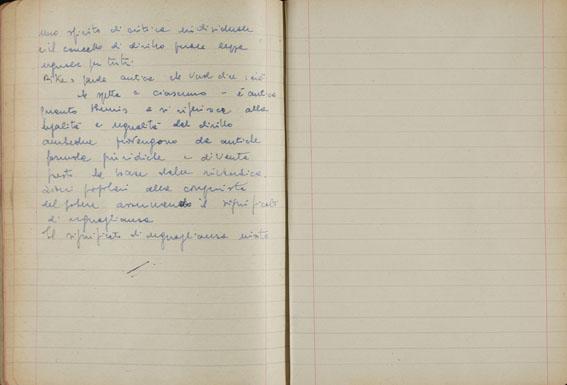 uno spirito di critica individuale
e il concetto di diritto quale legge
uguale per tutti.
Dike, parola antica che vuol dire: ciò
che spetta a ciascuno - è antica
quanto Themis e si riferisce alla
legalità e ugualità del diritto
ambedue provengono da antiche
formule giuridiche e diventa
presto la base delle rivendica
zioni popolari alla conquista
del potere assumendo il significato
di uguaglianza
Il significato di uguaglianza